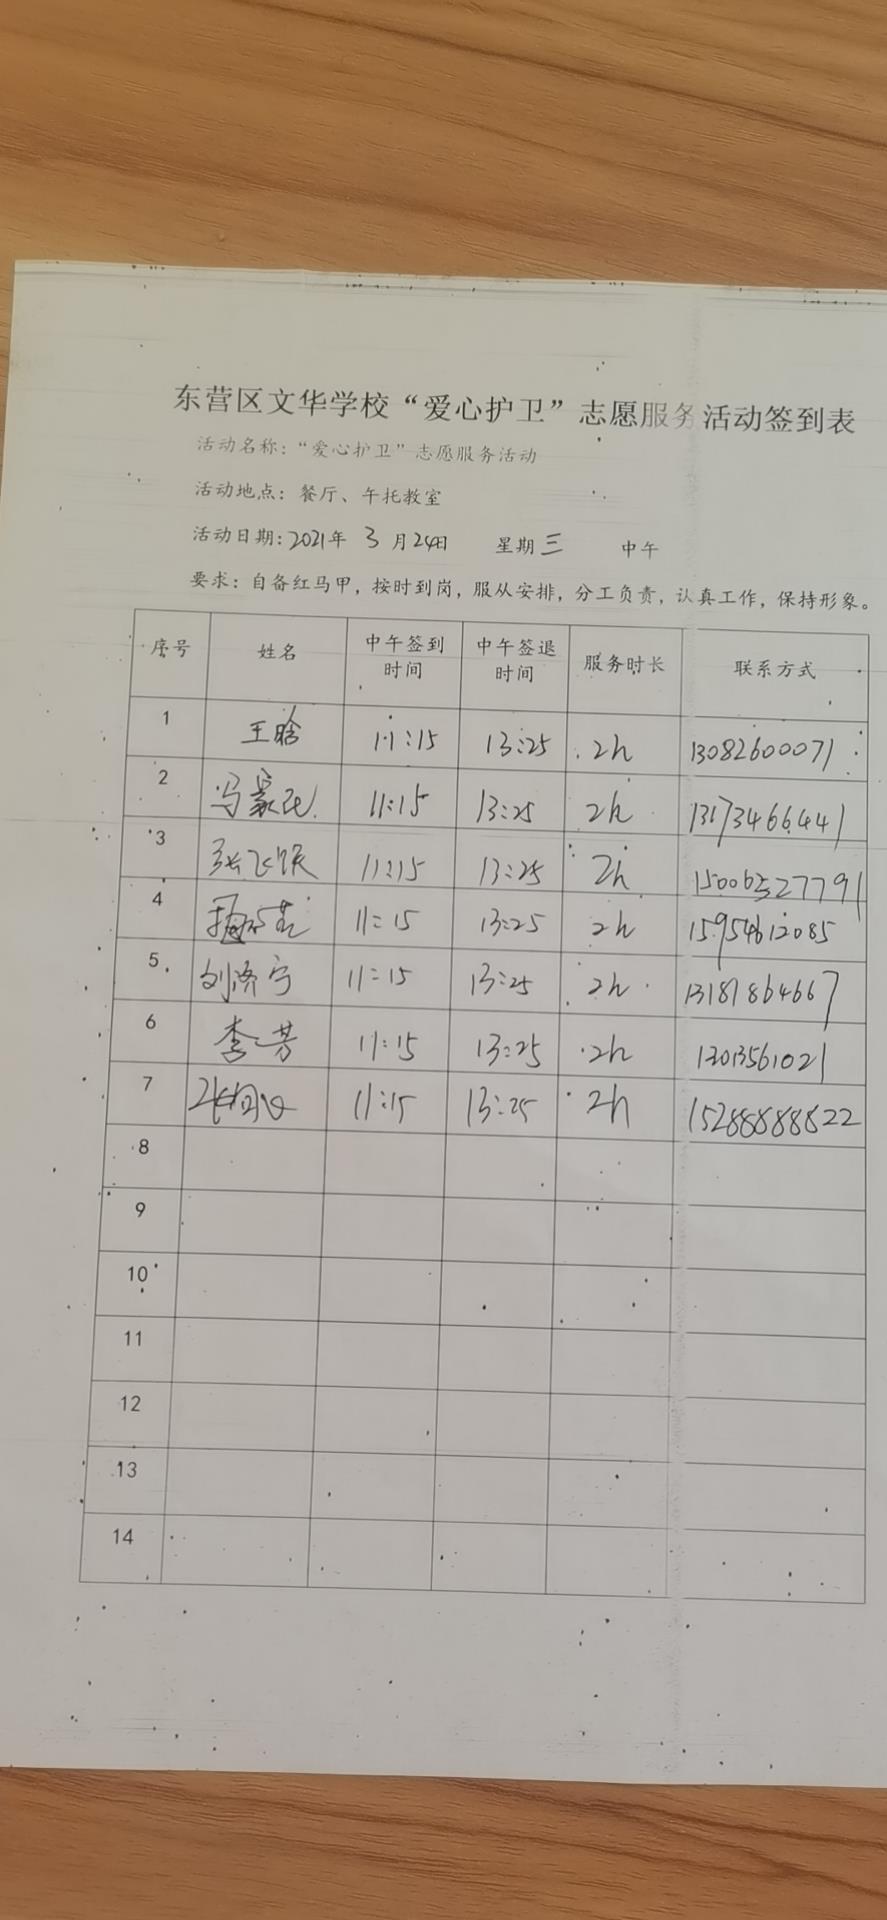 东营区文华学校“爱心护卫”志愿服务活动签到表
活动名称：“爱心护卫”志愿服务活动
活动地点：餐厅、午托教室
活动日期：2021年 3 月 24日 星期三 中午
要求：自备红马甲，按时到岗，服从安排，分工负责，认真工作，保持形象。
序号 姓名 中午签到时间 中午签退时间 服务时长 联系方式
1 王晗 11:15 13:25 2h 13082600071
2 冯 11:15 13:25 2h 13173466441
3 张飞 11:15 13:25 2h 15006527791
4 11:15 13:25 2h 15954612085
5 刘济宁 11:15 13:25 2h 13181864667
6 李芳 11:15 13:25 2h 13013561021
7 11:15 13:25 2h 15288888822
8
9
10
11
12
13
14